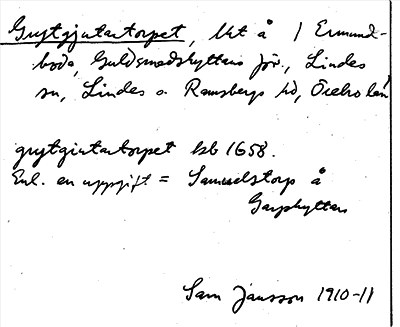 Grytgjutartorpet, lkt å / Ermund-
boda, Guldsmedshyttans förs., Lindes
sn, Lindes o. Ramsbergs hd, Örebro län
grytgiutartorpet kb 1658.
Enl. en uppgift = Samuelstorp å
Garphyttan
Sam Jansson 1910-11